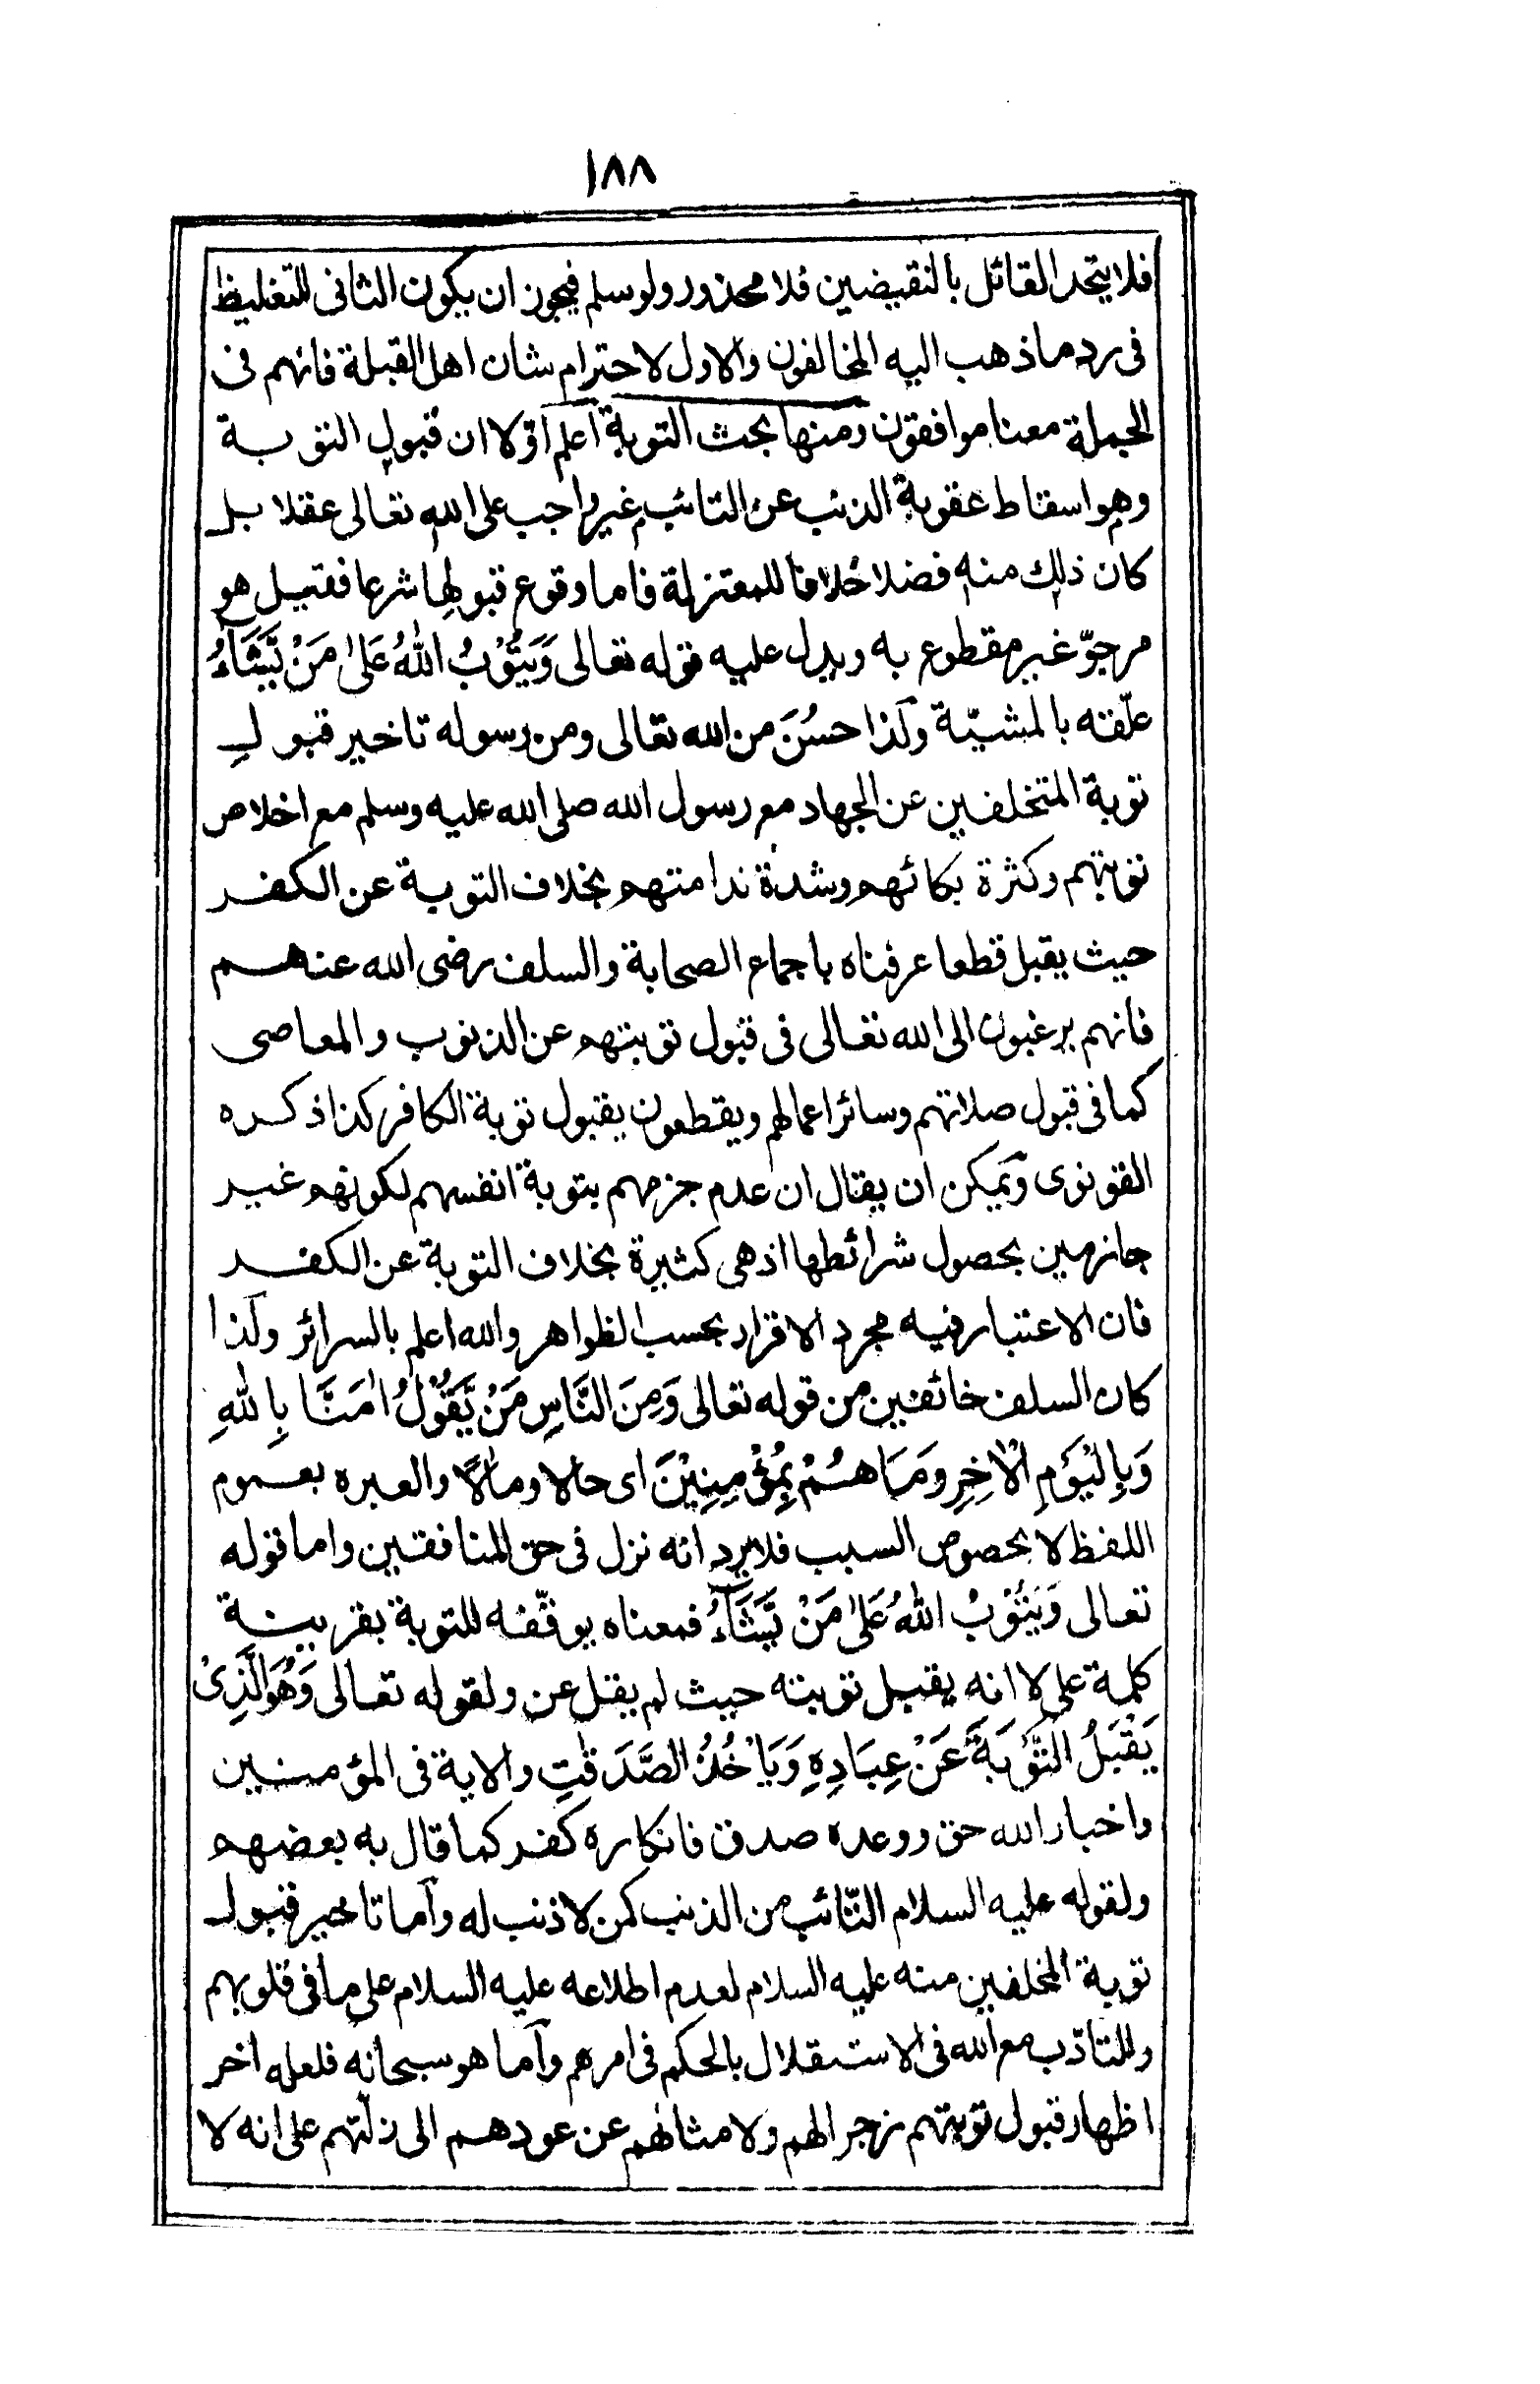 ١٨٨
فلا يتحد القائل بالنقيضين فلا محذور ولو سلم فيجوز ان يكون الثانى للتغليظ
فى رد ما ذهب اليه المخالفون والاول لاحترام شان اهل القبلة فانهم فى
الجملة معنا موافقون ومنها بحث التوبة اعلم اوّلا ان قبول التوبة
وهو اسقاط عقوبة الذنب عن التائب غير واجب على الله تعالى عقلا بل
كان ذلك منه فضلا خلافا للمعتزلة فاما وقوع قبولها شرعا فقيل هو
مرجوّ غير مقطوع به ويدل عليه قوله تعالى وَيَتُوْبُ اللّٰهُ عَلٰى مَنْ يَّشَآءُ
علّقه بالمشيّة ولذا حسُنَ من الله تعالى ومن رسوله تاخير قبول
توبة المتخلفين عن الجهاد مع رسول الله صلى الله عليه وسلم مع اخلاص
توبتهم وكثرة بكائهم وشدة ندامتهم بخلاف التوبة عن الكفر
حيث يقبل قطعا عرفناه باجماع الصحابة والسلف رضى الله عنهم
فانهم يرغبون الى الله تعالى فى قبول توبتهم عن الذنوب والمعاصى
كما فى قبول صلاتهم وسائر اعمالهم ويقطعون بقبول توبة الكافر كذا ذكره
القونوى ويمكن ان يقال ان عدم جزمهم بتوبة انفسهم لكونهم غير
جازمين بحصول شرائطها اذ هى كثيرة بخلاف التوبة عن الكفر
فان الاعتبار فيه مجرد الاقرار بحسب الظواهر والله اعلم بالسرائر ولذا
كان السلف خائفين من قوله تعالى وَمِنَ النَّاسِ مَنْ يَّقُوْلُ اٰمَنَّا بِاللّٰهِ
وَبِالْيَوْمِ الْاٰخِرِ وَمَا هُمْ بِمُؤْمِنِيْنَ اى حالا ومآلا والعبره بعموم
اللفظ لا بخصوص السبب فلا يرد انه نزل فى حق المنافقين واما قوله
تعالى وَيَتُوْبُ اللّٰهُ عَلٰى مَنْ يَّشَآءُ فمعناه يوفّقه للتوبة بقرينة
كلمة على لا انه يقبل توبته حيث لم يقل عن ولقوله تعالى وَهُوَ الَّذِىْ
يَقْبَلُ التَّوْبَةَ عَنْ عِبَادِهٖ وَيَاْخُذُ الصَّدَقٰتِ والاية فى المؤمنين
واخبار الله حق ووعده صدق فانكاره كفر كما قال به بعضهم
ولقوله عليه السلام التّائب من الذنب كمن لا ذنب له وأما تاخير قبول
توبة المخلفين منه عليه السلام لعدم اطلاعه عليه السلام على ما فى قلوبهم
وللتادّب مع الله فى الاستقلال بالحكم فى امرهم وأما هو سبحانه فلعله اخر
اظهار قبول توبتهم زجرا لهم ولامثالهم عن عودهم الى زلّتهم على انه لا